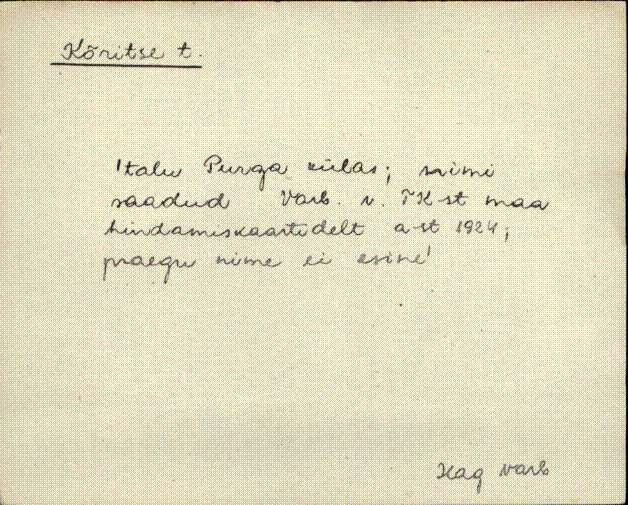 Kõritse t.
'talu Purga külas; nimi
saadud Varb. v. TK-st maa
hindamiskaartidelt a-st 1924;
praegu nime ei esine'
Hag Varb